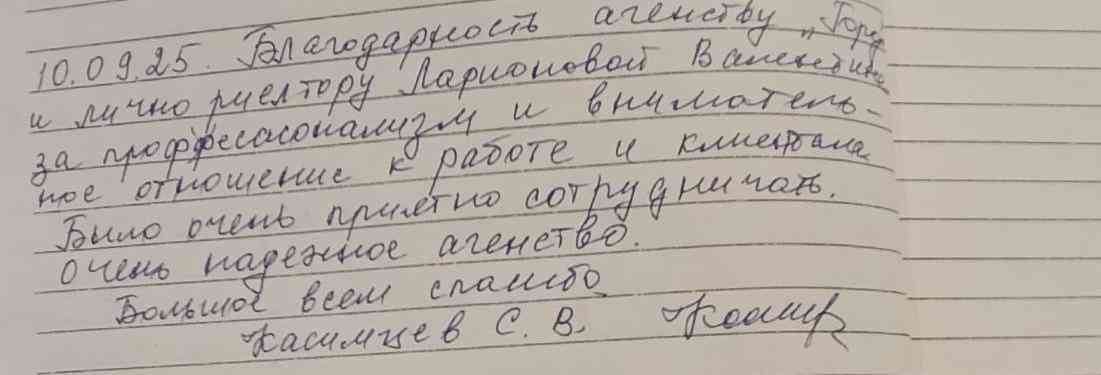 10.09.25. Благодарность агенству „Город
и лично риелтору Ларионовой Валентине
за профессионализм и вниматель-
ное отношение к работе и клиентам.
Было очень приятно сотрудничать.
Очень надежное агенство.
Большое всем спасибо
Касимцев С. В.